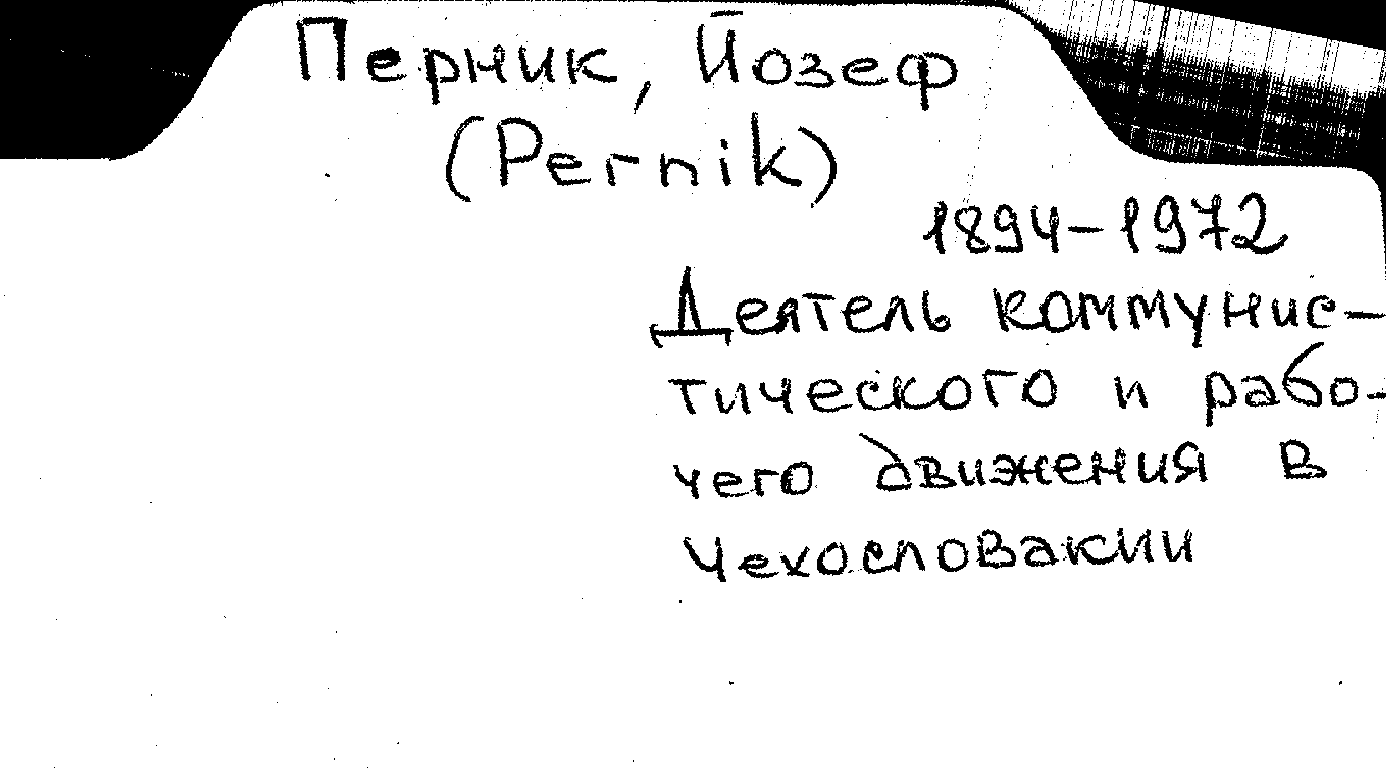 Перник, Йозеф
(Pernik)
1894-1972
Деятель коммунис-
тического и рабо-
чего движения в
Чехословакии